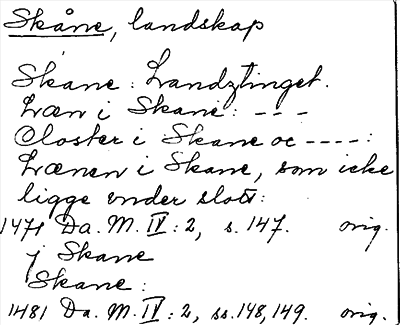 Skåne, landskap
Skane : Landztinget.
Læn i Skane : - - -
Closter i Skane oc - - - - :
Lænen i Skane, som icke
ligge vnder slott :
1471 Da. M. IV : 2, s. 147. orig.
j Skane
Skane :
1481 Da. M. IV : 2, ss. 148, 149. orig.